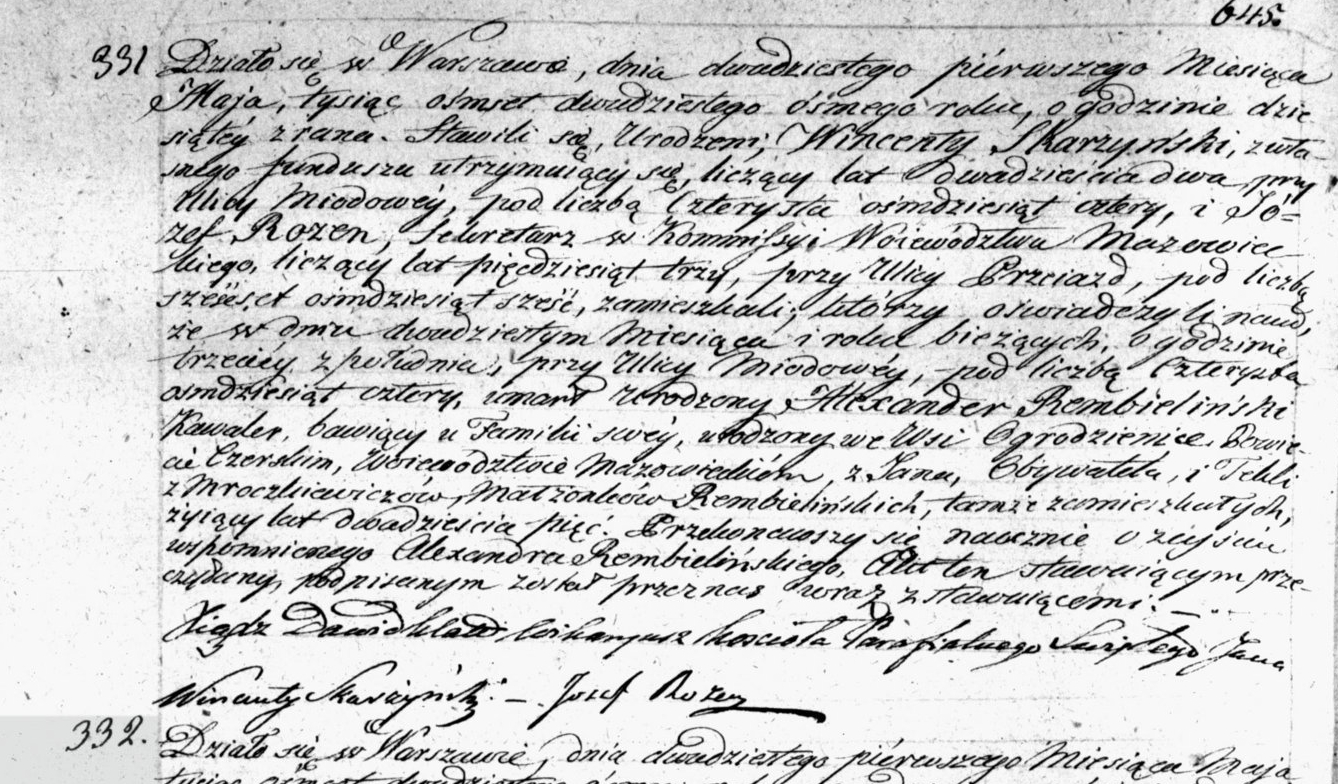 645.
331 Działo się w Warszawie, dnia dwudziestego piérwszego Miesiąca
Maja, tysiąc ośmset dwudziestego ósmego roku, o godzinie dzie
siątéy z rana. Stawili się, Urodzeni, Wincenty Skarzyński, z wła
snego funduszu utrzymuiący się, liczący lat dwadzieścia dwa przy
Ulicy Miodowéy, pod liczbą Czterysta ośmdziesiąt cztery, i Jó=
zef Rozen, Sekretarz w Kommissyi Woiewództwa Mazowiec
kiego, liczący lat pięćdziesiąt trzy, przy Ulicy Przeiazd, pod liczbą
sześćset ośmdziesiąt sześć, zamieszkali; którzy oświadczyli nam,
że w dniu dwudziestym Miesiąca i roku bieżących, o godzinie
trzeciéy z południa, przy Ulicy Miodowéy, pod liczbą Czterysta
ośmdziesiąt cztery, umarł Urodzony Alexander Rembieliński
Kawaler, bawiący u Familii swéy, urodzony we Wsi Ogrodzienice, Powie-
cie Czerskim, Woiewództwie Mazowieckiém, z Jana, Obywatela, i Tekli
z Mroczkiewiczów, Małżonków Rembielińskich, tamże zamieszkałych,
żyiący lat dwadzieścia pięć. Przekonawszy się naocznie o zéyściu
wspomnionego Alexandra Rembielińskiego, Akt ten stawaiącym prze-
czytany, podpisanym został przez nas wraz z stawaiącemi. —
Xiądz Dawid Wikaryusz kościoła Parafialnego Świętego Jana
Wincenty Skarżyński. — Josef Rozen
332. Działo się w Warszawie, dnia dwudziestego piérwszego Miesiąca Maja
tysiąc ośmset dwudziestego ósmego